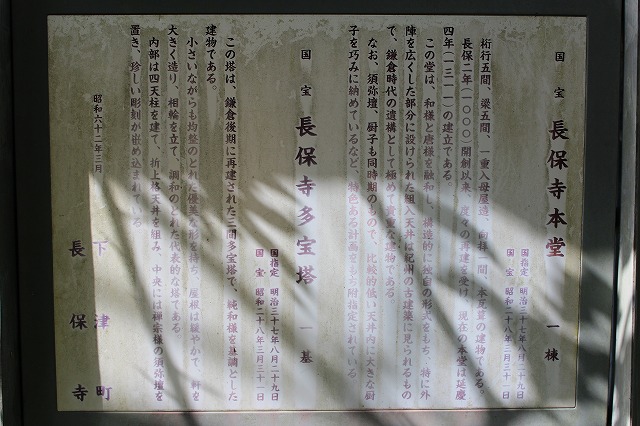 国宝 長保寺本堂 一棟
国指定 明治三十七年八月二十九日
国宝 昭和二十八年三月三十一日
桁行五間、梁五間、一重入母屋造、向拝一間、本瓦葺の建物である。
長保二年(一〇〇〇)開創以来、度々の再建を受け、現在の本堂は延慶
四年(一三一一)の建立である。
この堂は、和様と唐様を融和し、構造的に独自の形式をもち、特に外
陣を広くした部分に設けられた組入天井は紀州の古建築に見られるもの
で、鎌倉時代の遺構として極めて貴重な建物である。
なお、須弥壇、厨子も同時期のもので、比較的低い天井内に大きな厨
子を巧みに納めているなど、特色ある計画をもち附指定されている
国宝 長保寺多宝塔 一基
国指定 明治三十七年八月二十九日
国宝 昭和二十八年三月三十一日
この塔は、鎌倉後期に再建された三間多宝塔で、純和様を基調とした
建物である。
小さいながらも均整のとれた優美な形を持ち、屋根は緩やかで、軒を
大きく造り、相輪を立て、調和のとれた代表的な塔である
内部は四天柱を建て、折上格天井を組み、中央には禅宗様の須弥壇を
置き、珍しい彫刻が嵌め込まれている。
昭和六十二年三月
下津町
長保寺